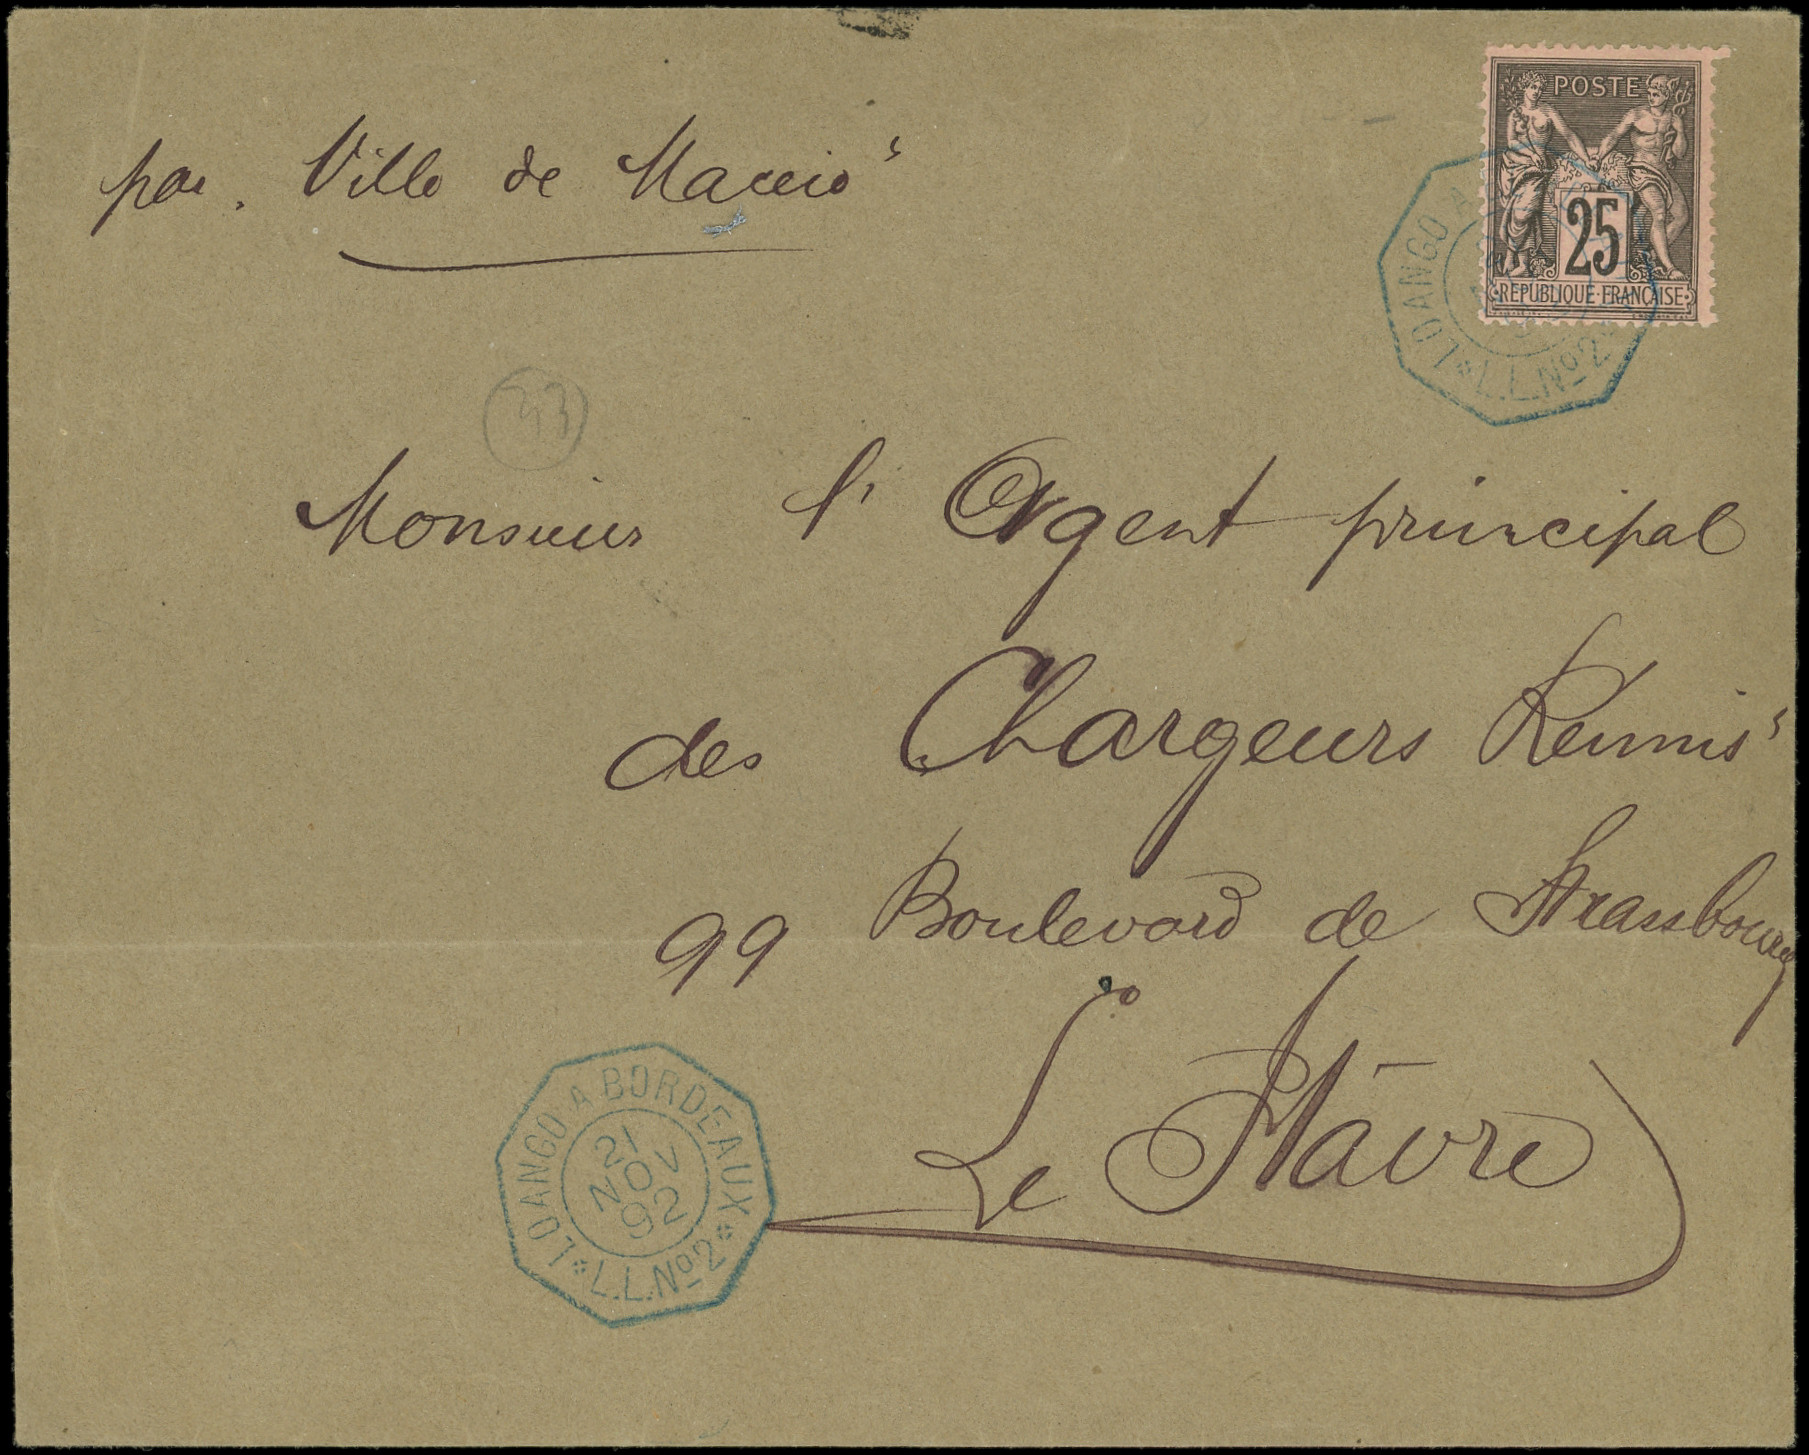 POSTE
25
RÉPUBLIQUE FRANÇAISE
par. Ville de Maceió
LOANGO A
L.L. No 2
43
Monsieur l'Agent principal
des Chargeurs Réunis
99 Boulevard de Strasbourg
Le Hâvre
LOANGO A BORDEAUX
21
NOV
92
L.L. No 2